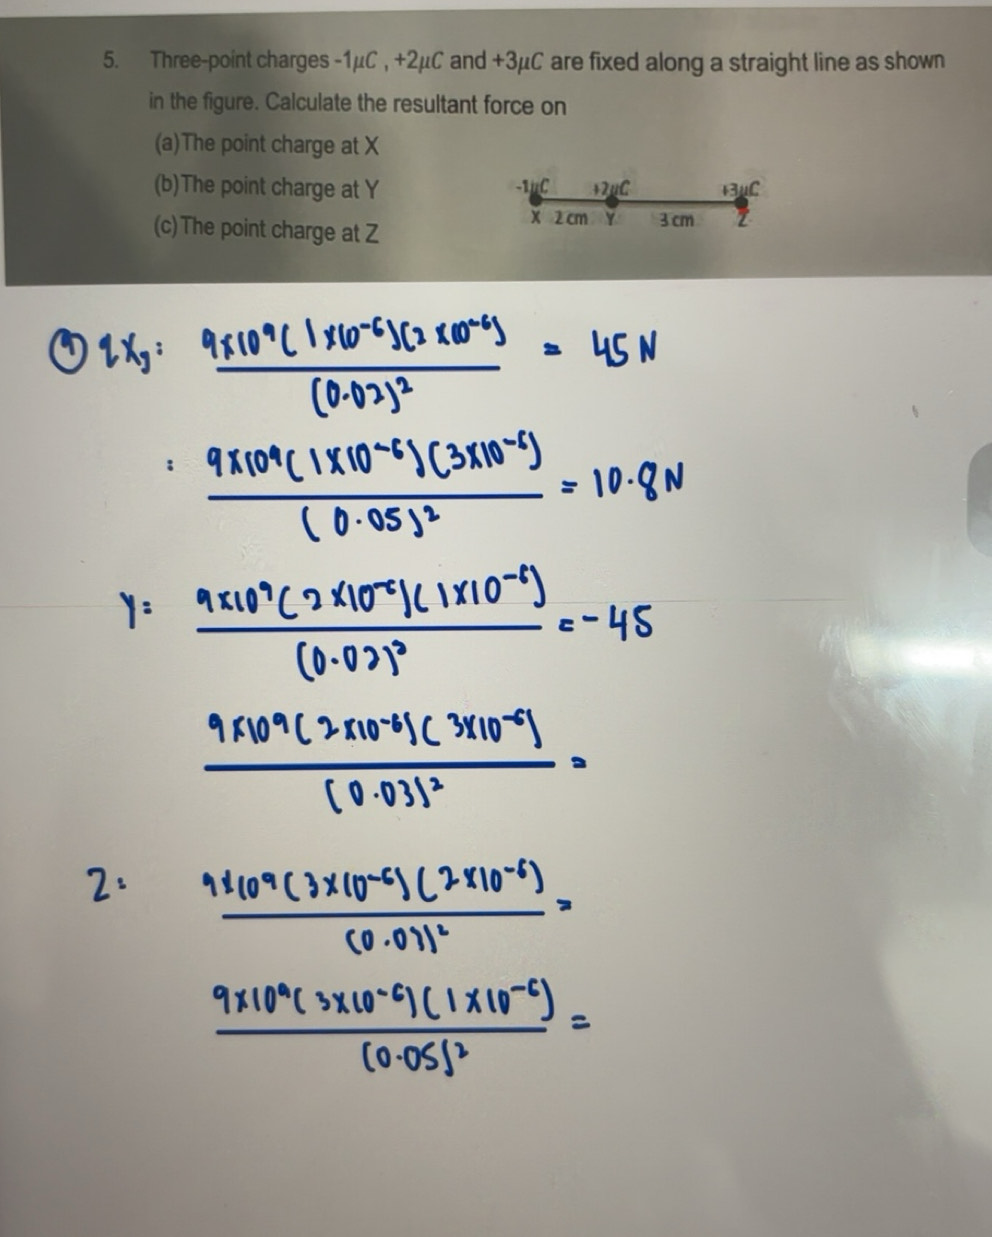 5. Three-point charges -1μC , +2μC and +3μC are fixed along a straight line as shown
in the figure. Calculate the resultant force on
(a)The point charge at X
(b)The point charge at Y
(c)The point charge at Z
-1μC +2μC +3μC
X 2 cm Y 3 cm Z
9x10⁹(1x10⁻⁶)(2x10⁻⁶)
= 45 N
(0.02)²
: 9x10⁹(1x10⁻⁶)(3x10⁻⁶)
= 10.8N
(0.05)²
Y: 9x10⁹(2x10⁻⁶)(1x10⁻⁶)
= -45
(0.02)²
9x10⁹(2x10⁻⁶)(3x10⁻⁶)
=
(0.03)²
Z: 9x10⁹(3x10⁻⁶)(2x10⁻⁶)
=
(0.03)²
9x10⁹(3x10⁻⁶)(1x10⁻⁶)
=
(0.05)²